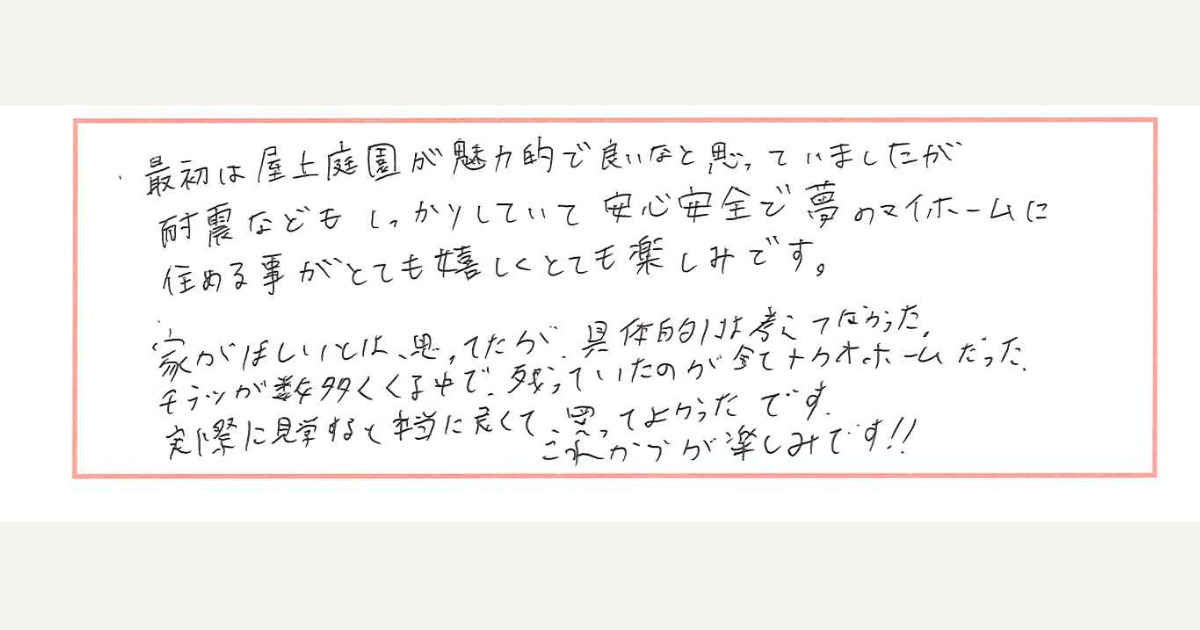 ・最初は屋上庭園が魅力的で良いなと思っていましたが
耐震などもしっかりしていて安心安全で夢のマイホームに
住める事がとても嬉しくとても楽しみです。
・家がほしいとは、思ってたが、具体的には考えてなかった。
チラシが数多くくる中で、残っていたのが全てナカオホームだった。
実際に見学すると本当に良くて、思ってよかったです。
これからが楽しみです!!